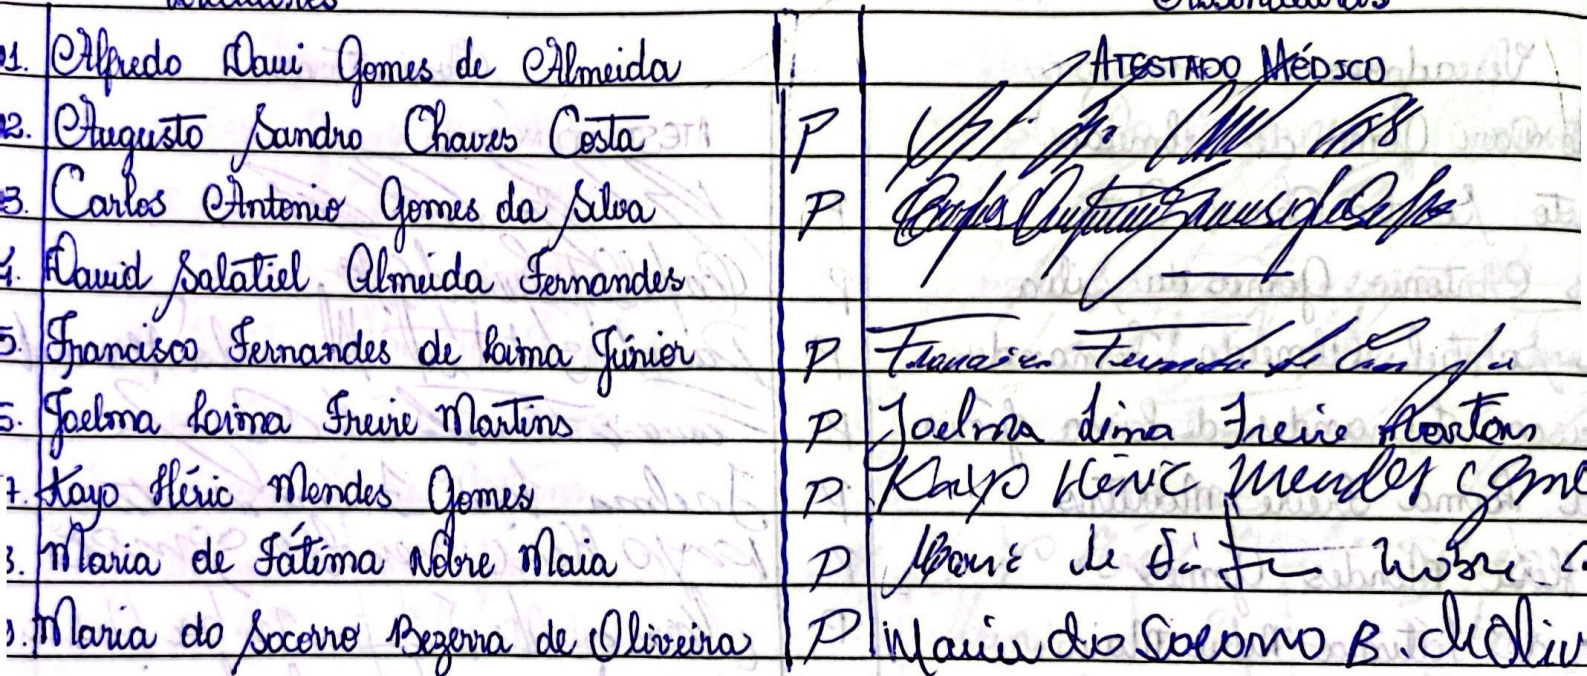 Vereadores Assinaturas
01. Alfredo Davi Gomes de Almeida ATESTADO MÉDICO
02. Augusto Sandro Chaves Costa P
03. Carlos Antonio Gomes da Silva P Carlos Antonio Gomes da Silva
4. David Salatiel Almeida Fernandes
5. Francisco Fernandes de Lima Júnior P Francisco Fernandes de Lima
6. Joelma Lima Freire Martins P Joelma Lima Freire Martins
7. Kayo Héric Mendes Gomes P Kayo Héric Mendes Gome
8. Maria de Fátima Nobre Maia P Maria de Fátima Nobre
9. Maria do Socorro Bezerra de Oliveira P Maria do Socorro B. de Oliv